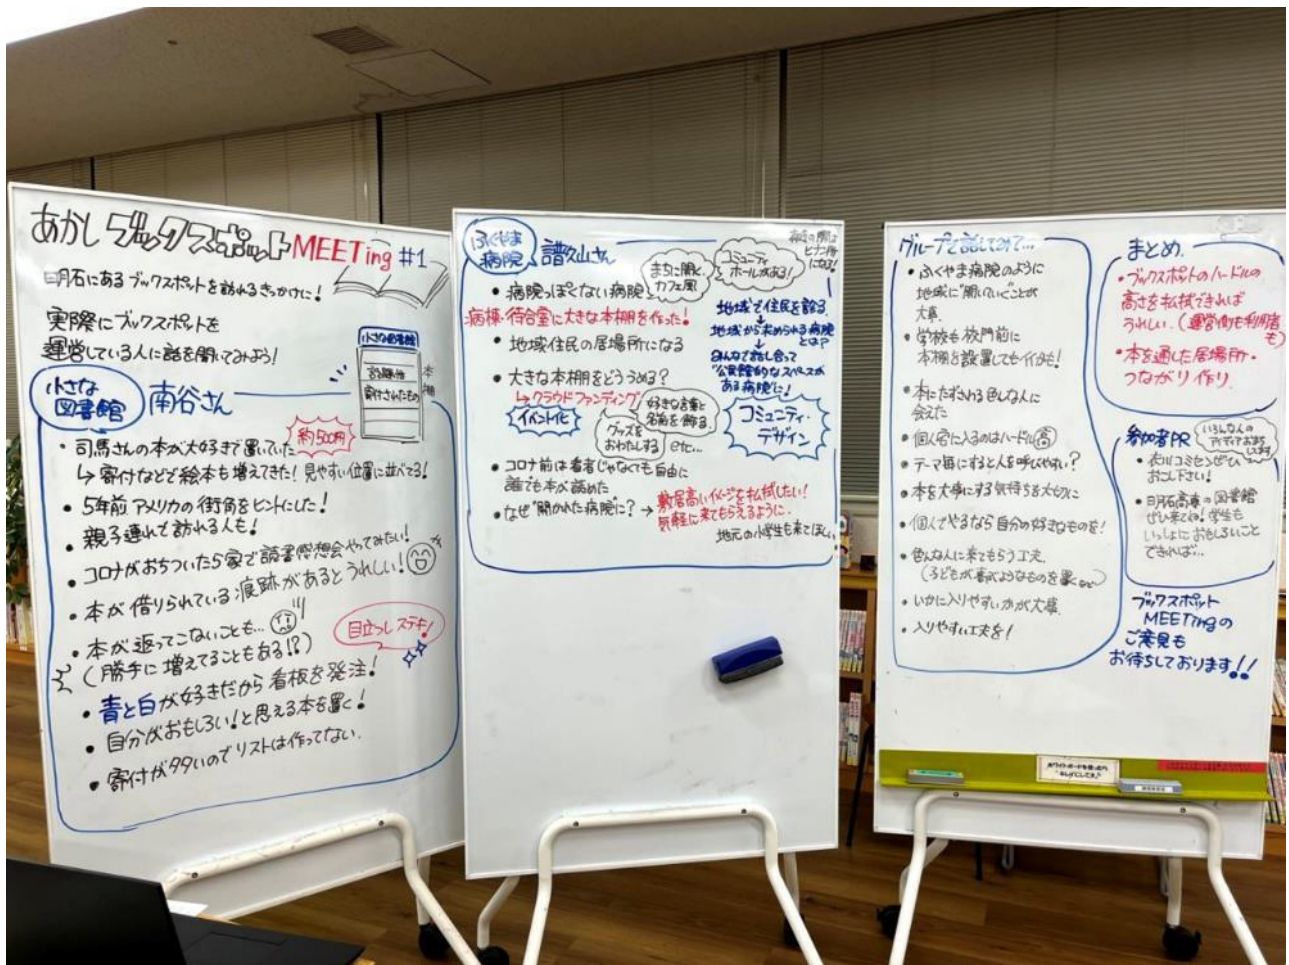 あかし ブックスポット MEETing #1
明石にあるブックスポットを訪れるきっかけに!
実際にブックスポットを
運営している人に話を聞いてみよう!
小さな図書館
寄付されたもの
本棚
小さな
図書館
南谷さん
約500円
・司馬さんの本が大好きで置いていた
↳ 寄付などで絵本も増えてきた! 見やすい位置に並べてる!
・5年前 アメリカの街角をヒントにした!
・親子連れで訪れる人も!
・コロナがおちついたら家で読書感想会やってみたい!
・本が借りられている痕跡があるとうれしい!
・本が返ってこないことも…
(勝手に増えてることもある!?)
目立つしステキ!
・青と白が好きだから看板を発注!
・自分がおもしろい!と思える本を置く!
・寄付が多いのでリストは作ってない.
ふくやま
病院
譜久山さん
まちに開く、
カフェ風
コミュニティ
ホールがある!
ヒナン所
になる!
・病院っぽくない病院
病棟・待合室に大きな本棚を作った!
・地域住民の居場所になる
・大きな本棚をどううめる?
↳ クラウドファンディング
イベント化
グッズを
おわたしする
好きな言葉と
名前を飾る
etc…
・コロナ前は患者じゃなくても自由に
誰でも本が読めた
・なぜ"開かれた病院"に? →
敷居高いイメージを払拭したい!
気軽に来てもらえるように.
地元の小学生も来てほしい
地域で住民を診る
↓
地域から求められる病院
とは?
↓
みんなで話し合って
"公民館的なスペースが
ある病院"に!
コミュニティ・
デザイン
グループで話してみて…
・ふくやま病院のように
地域に"開いていくことが
大事.
・学校も校門前に
本棚を設置してもイイかも!
・本にたずさわる色んな人に
会えた
・個人宅に入るのはハードル高
・テーマ毎にすると人を呼びやすい?
・本を大事にする気持ちを大切に
・個人でやるなら自分の好きなものを!
・色んな人に来てもらう工夫
(子どもが喜ぶようなものを置くなど)
・いかに入りやすいかが大事.
・入りやすい工夫を!
まとめ.
・ブックスポットのハードルの
高さを払拭できれば
うれしい. (運営側も利用者も)
・本を通した居場所・
つながり作り
参加者PR
いろんな人の
アイディアおまち
してます
・衣川コミセンぜひ
おこし下さい!
・明石高専の図書館
ぜひ来てね! 学生も
いっしょにおもしろいこと
できれば…
ブックスポット
MEETingの
ご意見も
お待ちしております!!
ホワイトボードを使ったら